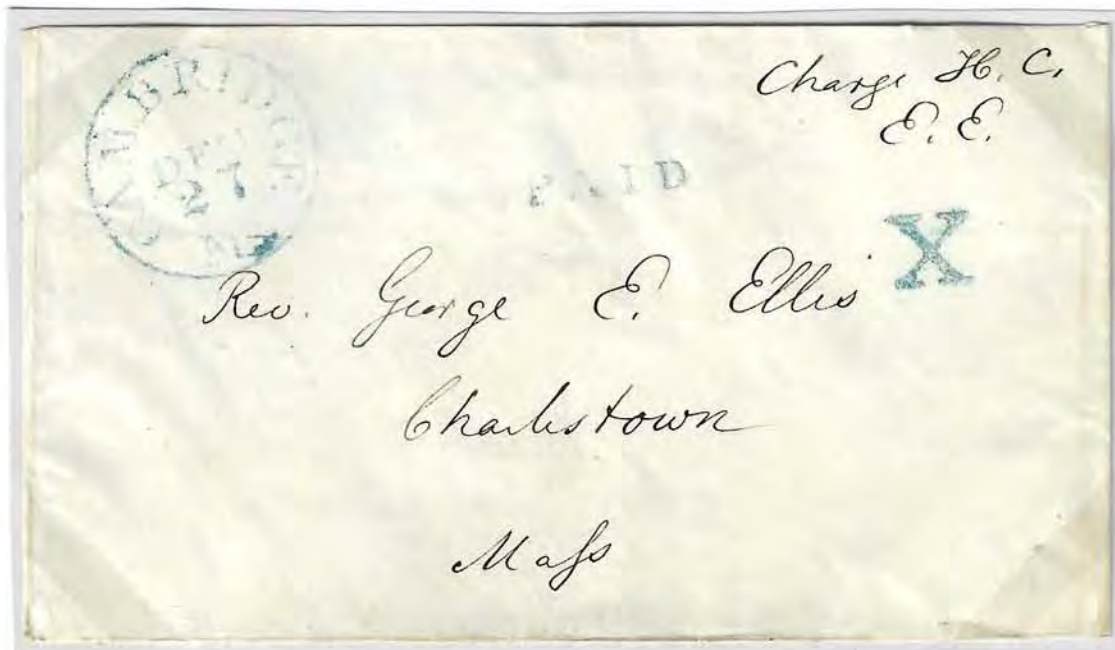 CAMBRIDGE
DEC
27
Charge H. C.
E. E.
PAID
X
Rev. George E. Ellis
Charlestown
Mass